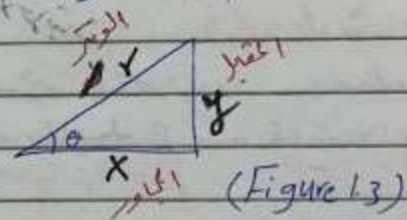 الوتر
r
المقابل
y
θ
x
المجاور
(Figure 1.3)